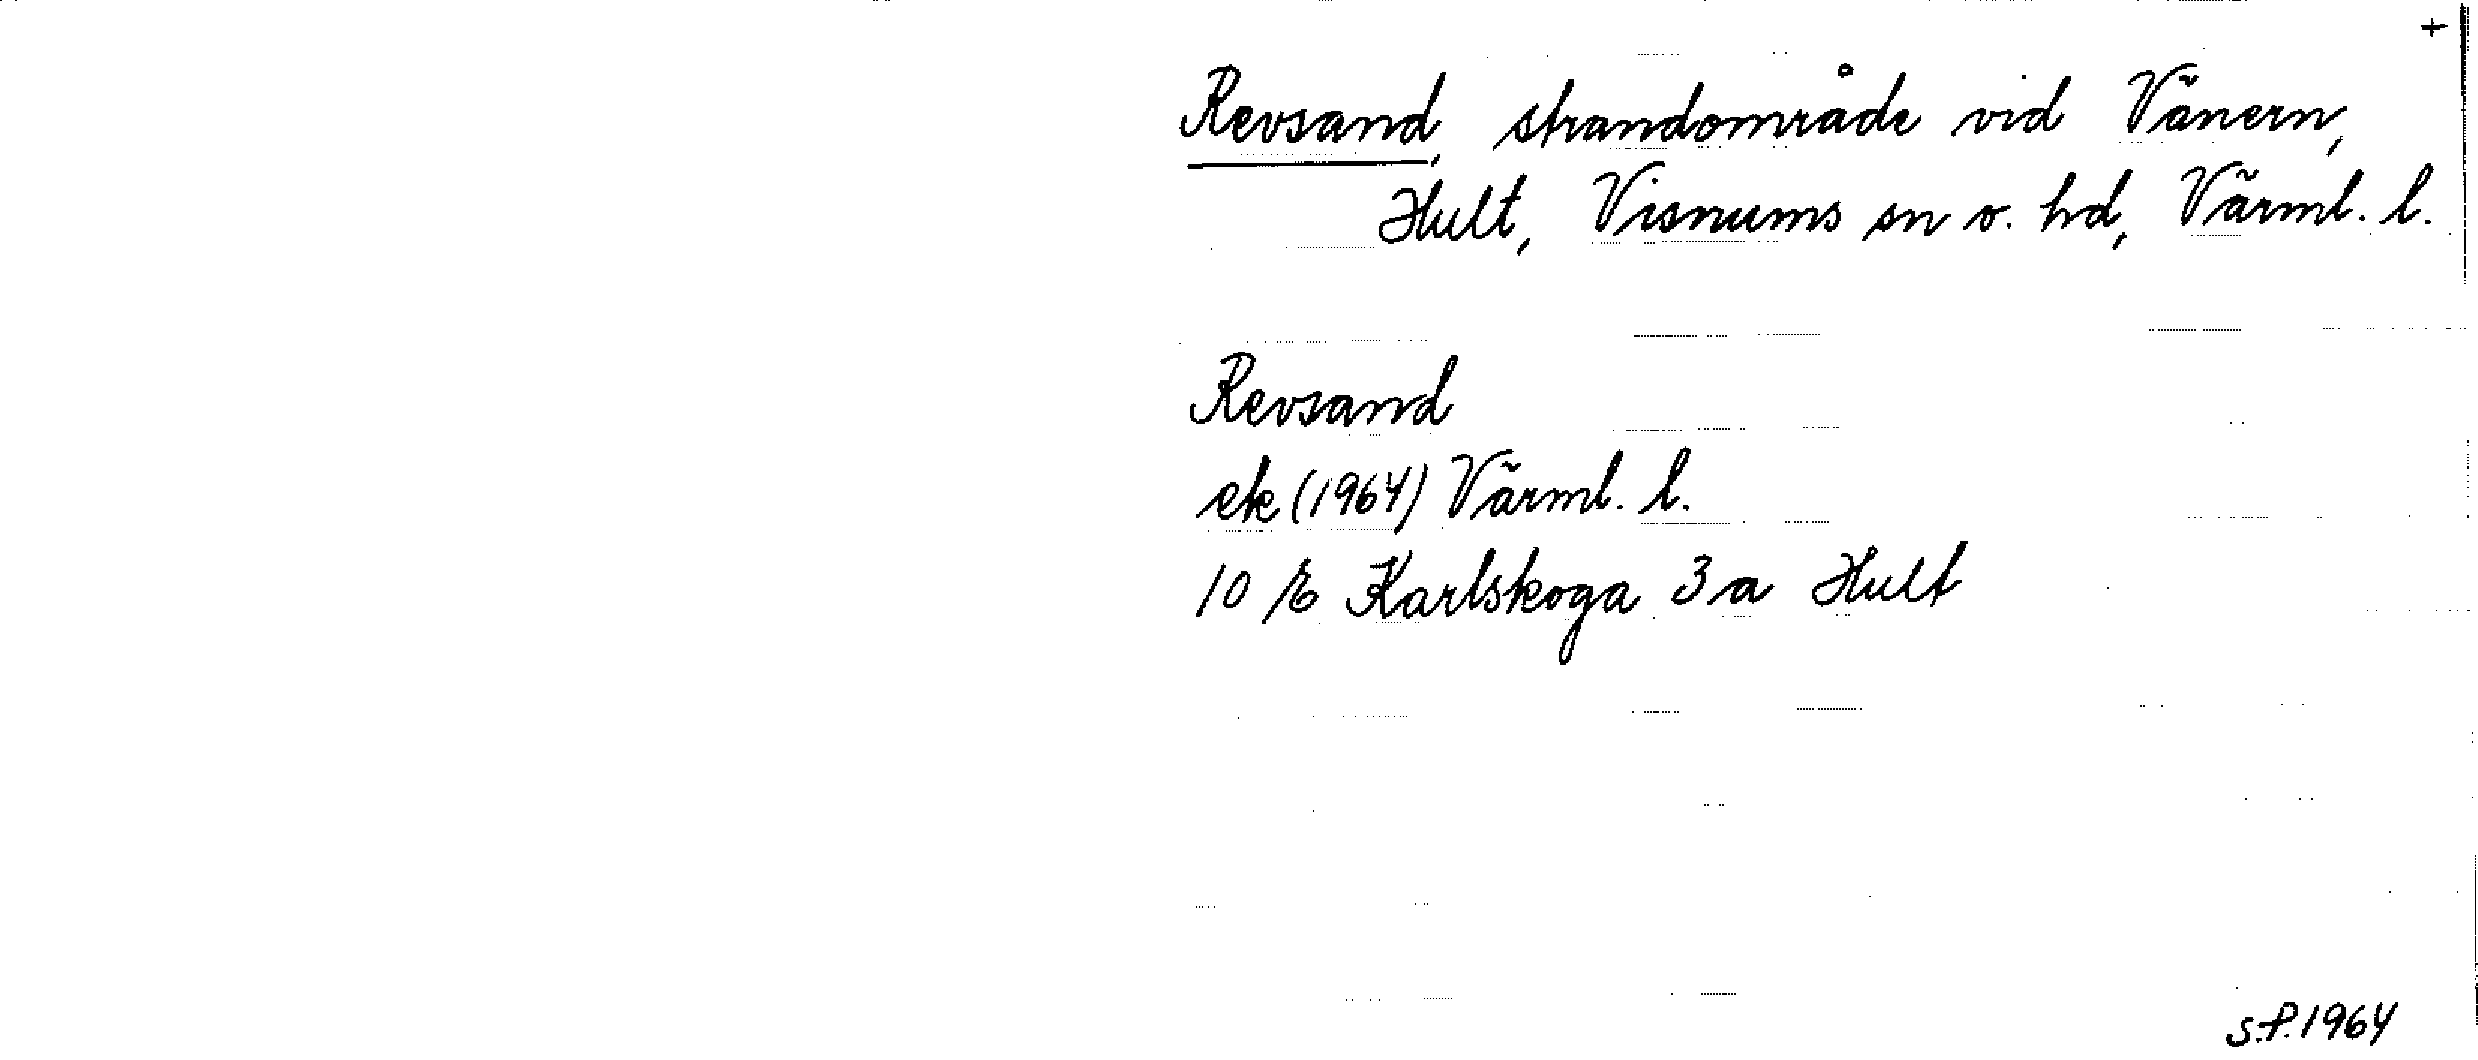 +
Revsand, strandområde vid Vänern,
Hult, Visnums sn o. hd, Värml. l.
Revsand
ek (1964) Värml. l.
10 E Karlskoga 3 a Hult
S.P. 1964